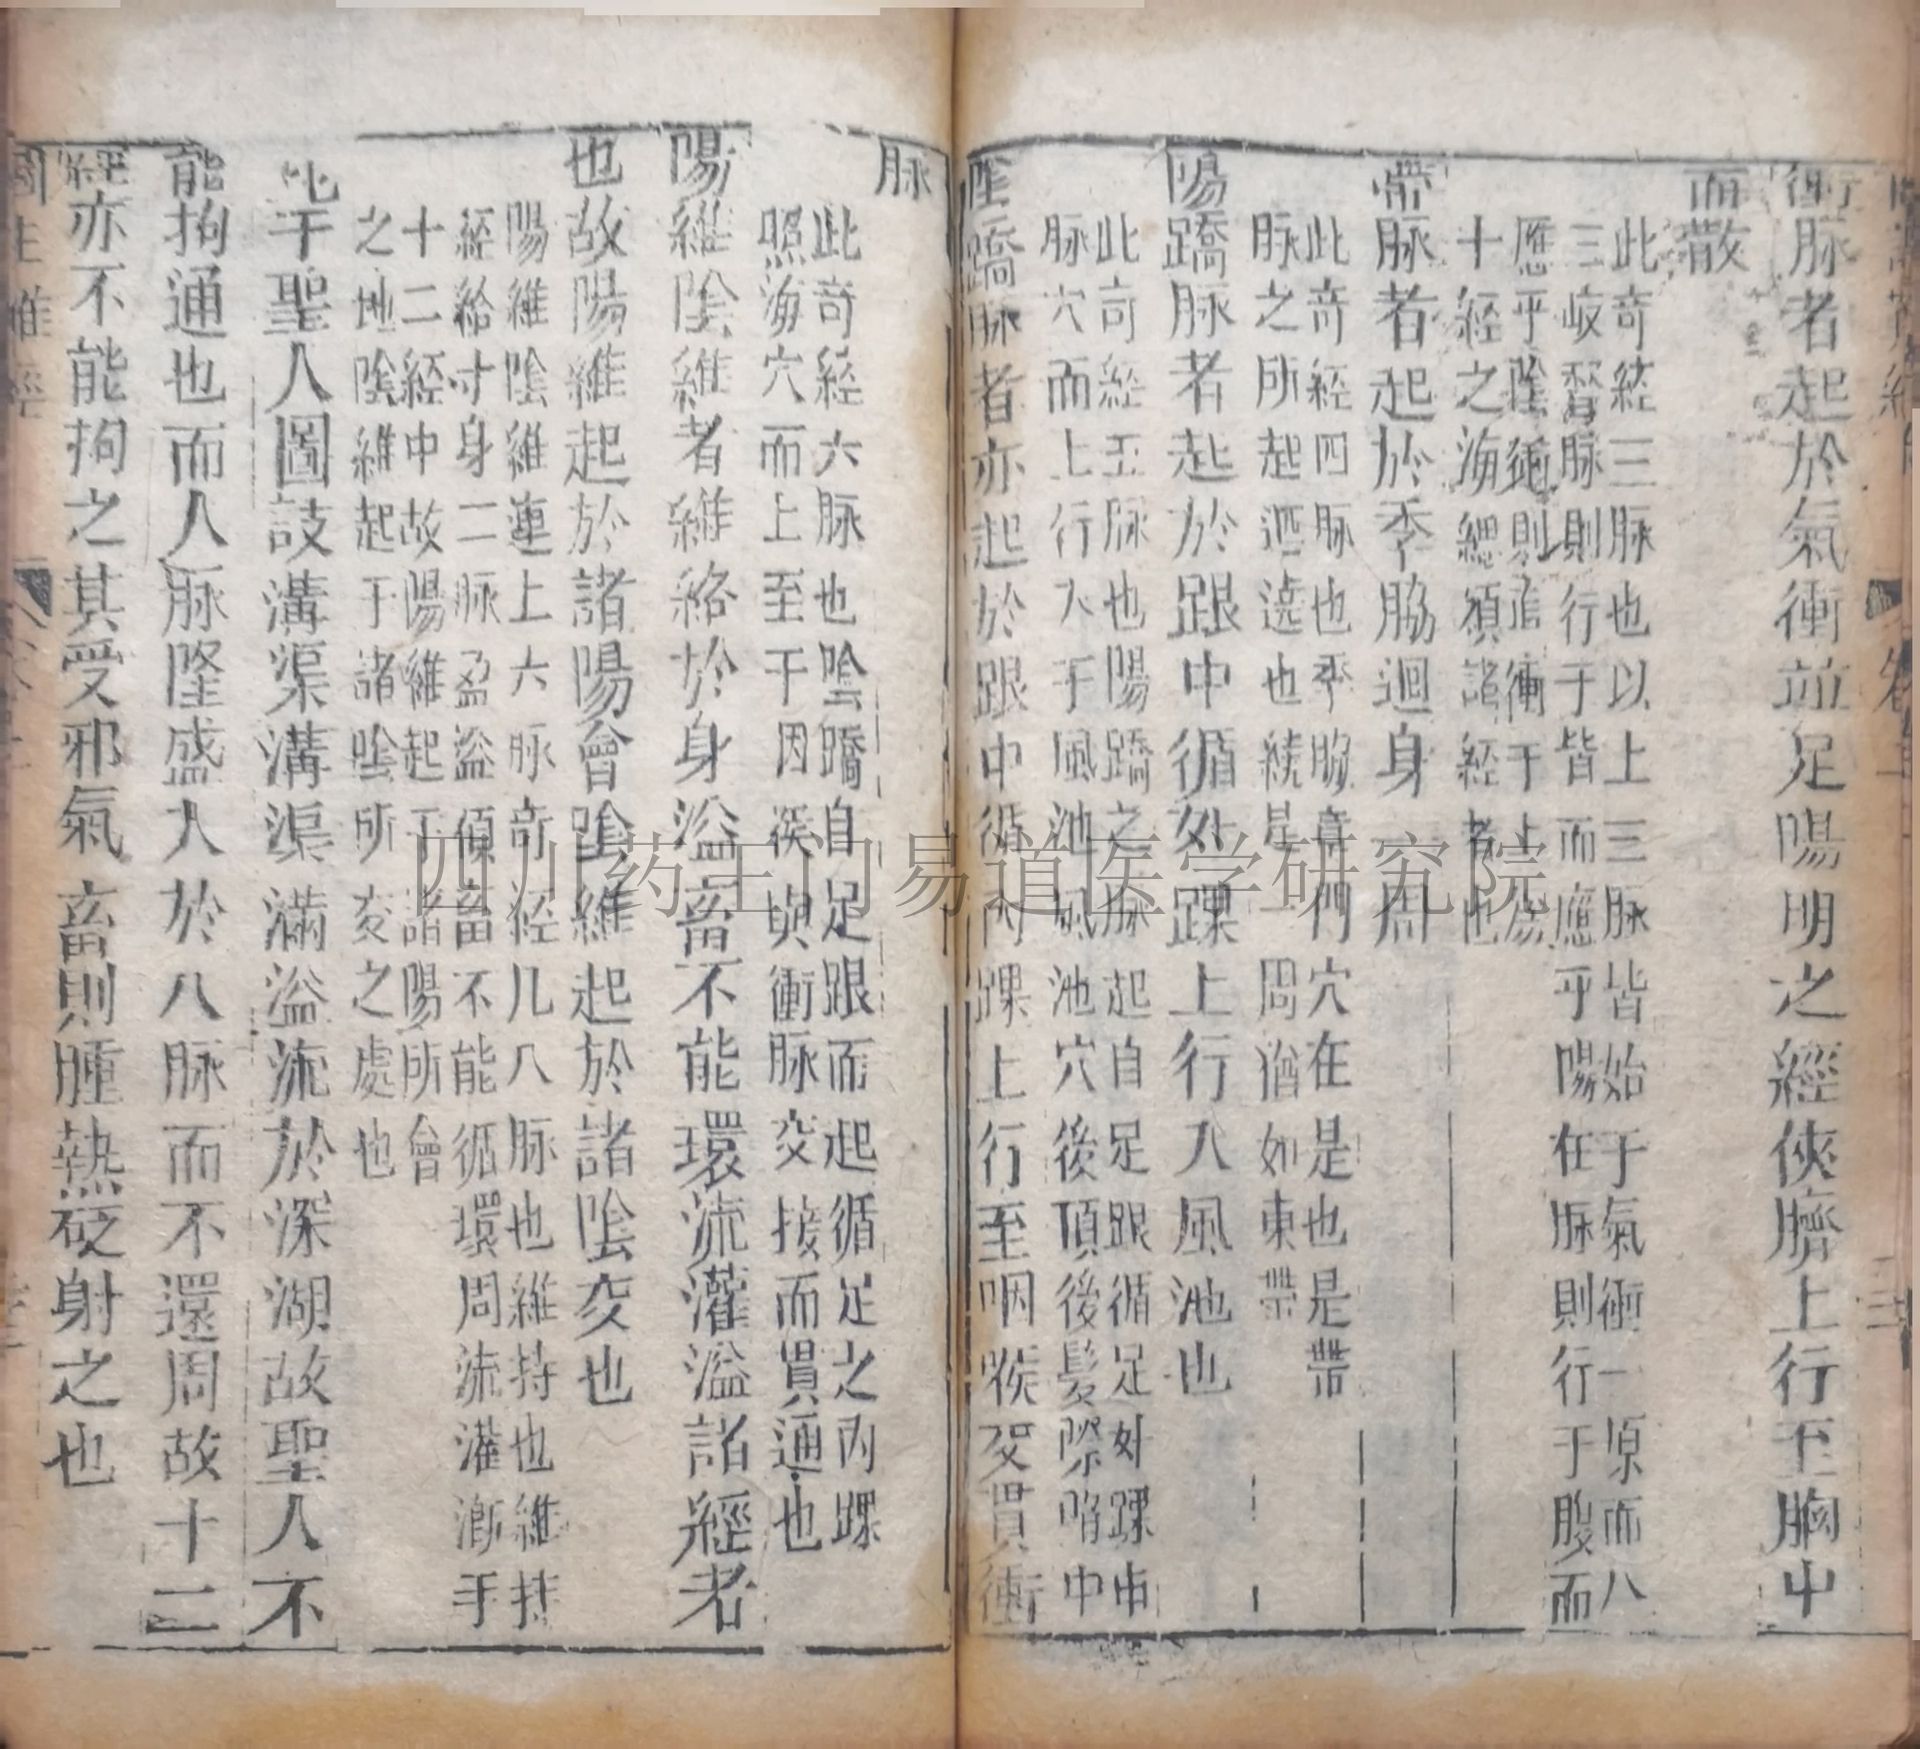 衝脉者起於氣衝並足陽明之經俠臍上行至胸中
而散
此奇經三脉也以上三脉皆始于氣衝一原而八
三岐督脉則行于皆而應乎陽在脉則行于腹而
應乎隂衝則

十經之海總領諸經者也
帶脉者起於季脇迴身一周
此奇經四脉也季脇章門穴在是也是帶
脉之所起迴遶也繞是一周猶如東帶
陽蹻脉者起於跟中循外踝上行入風池也
此奇經五脉也陽蹻之脉起自足跟循足外踝中
脉穴而上行入于風池風池穴後頂後髮際陷中
隂蹻脉者亦起於跟中循内踝上行至咽喉交貫衝
脉
此奇經六脉也隂蹻自足跟而起循足之内踝
照海穴而上至于因喉與衝脉交接而貫通也
陽維隂維者維絡於身溢畜不能環流灌溢諸經者
也故陽維起於諸陽會隂維起於諸隂交也
陽維隂維連上六脉奇經凡八脉也維持也維持
經絡寸身二脉盈溢傾畜不能循環周流灌漸手
十二經中故陽維起于諸陽所會
之地隂維起于諸隂所交之處也
比于聖人圖設溝渠溝渠滿溢流於深湖故聖人不
能拘通也而人脉隆盛入於八脉而不還周故十二
經亦不能拘之其受邪氣畜則腫熱砭射之也
圖主難經
四川药王门易道医学研究院